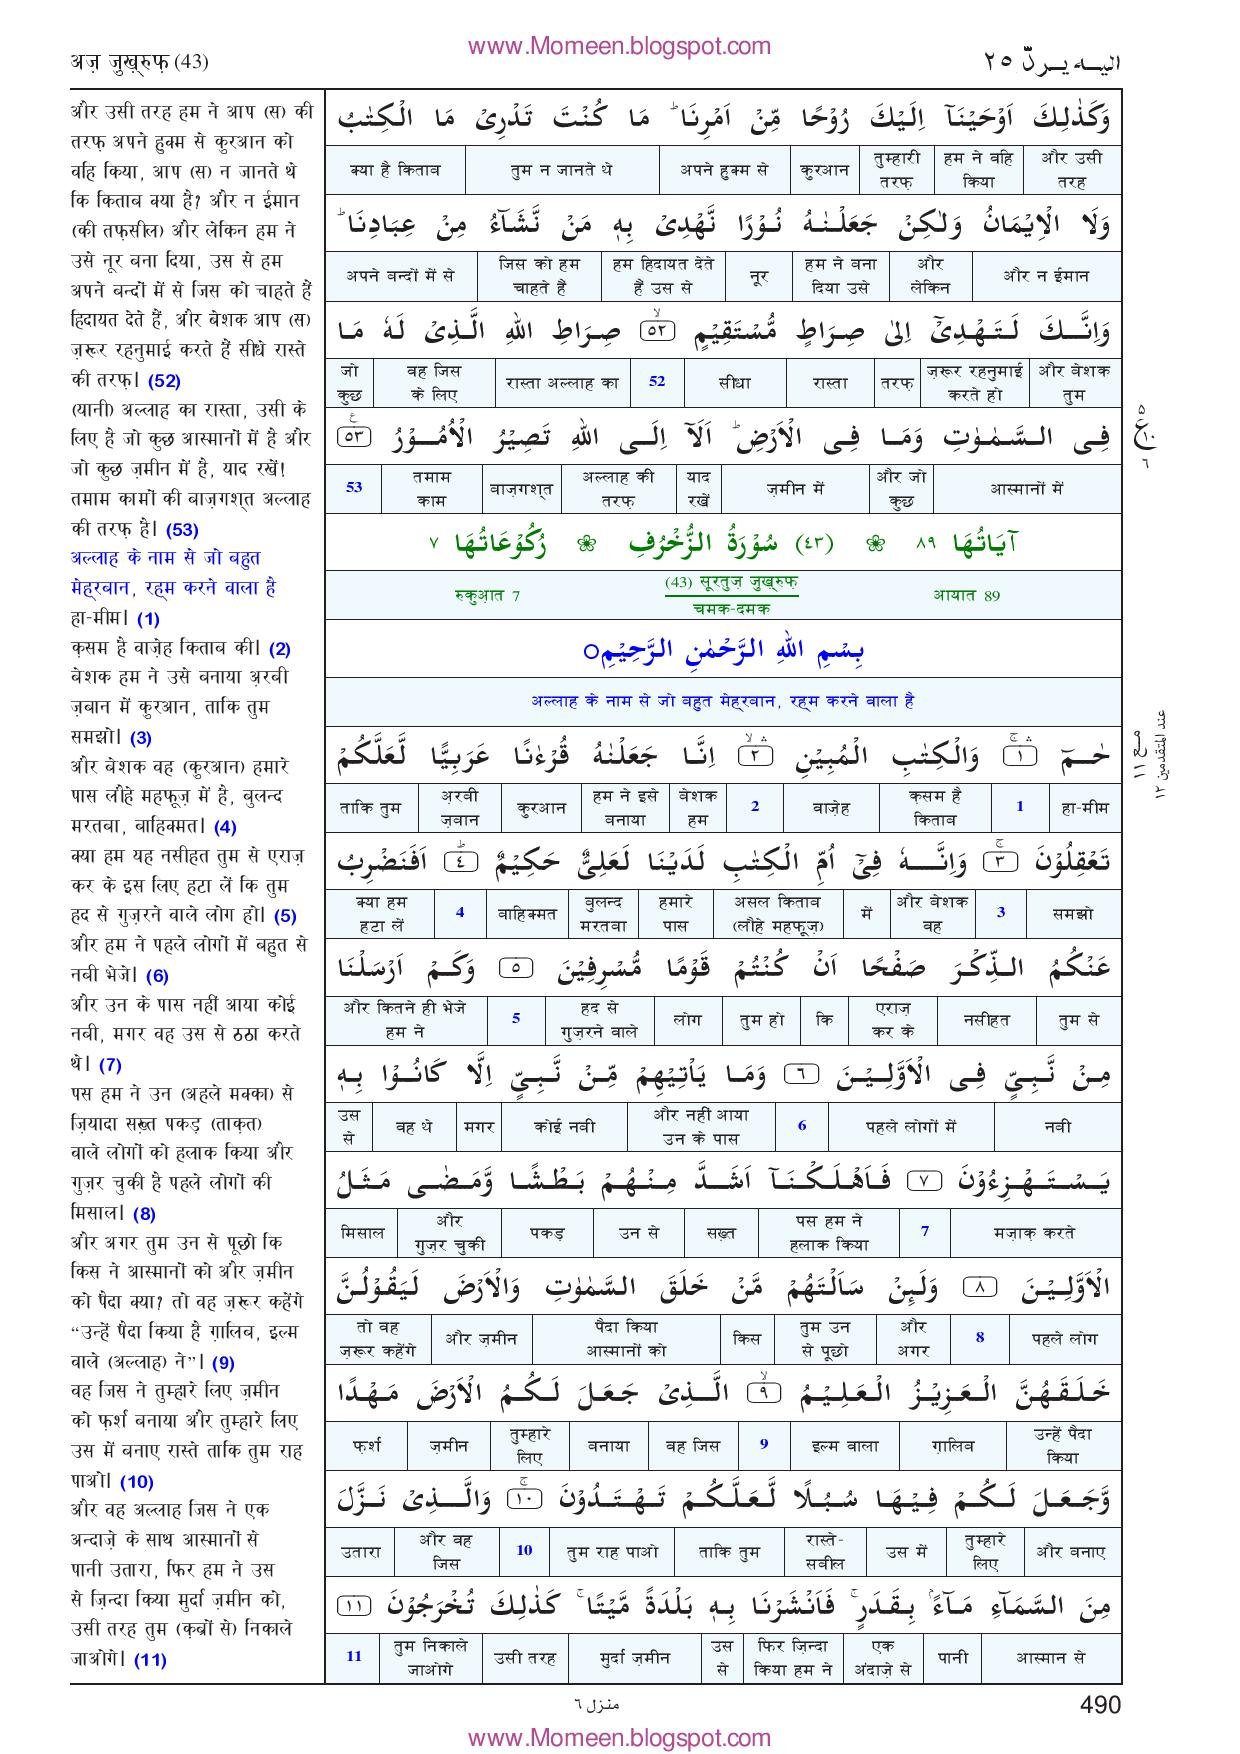 www.Momeen.blogspot.com
अज़ ज़ुख़्रुफ़ (43)
الیه یردّ ٢٥
और उसी तरह हम ने आप (स) की
तरफ़ अपने हुक्म से कुरआन को
वहि किया, आप (स) न जानते थे
कि किताब क्या है? और न ईमान
(की तफ़सील) और लेकिन हम ने
उसे नूर बना दिया, उस से हम
अपने बन्दों में से जिस को चाहते हैं
हिदायत देते हैं, और बेशक आप (स)
ज़रूर रहनुमाई करते हैं सीधे रास्ते
की तरफ़। (52)
(यानी) अल्लाह का रास्ता, उसी के
लिए है जो कुछ आस्मानों में है और
जो कुछ ज़मीन में है, याद रखें!
तमाम कामों की बाज़गश्त अल्लाह
की तरफ़ है। (53)
अल्लाह के नाम से जो बहुत
मेह्रबान, रह्म करने वाला है
हा-मीम। (1)
क़सम है वाज़ेह किताब की। (2)
बेशक हम ने उसे बनाया अ़रबी
ज़बान में कुरआन, ताकि तुम
समझो। (3)
और बेशक वह (कुरआन) हमारे
पास लौहे महफूज़ में है, बुलन्द
मरतबा, बाहिक्मत। (4)
क्या हम यह नसीहत तुम से एराज़
कर के इस लिए हटा लें कि तुम
हद से गुज़रने वाले लोग हो। (5)
और हम ने पहले लोगों में बहुत से
नबी भेजे। (6)
और उन के पास नहीं आया कोई
नबी, मगर वह उस से ठठा करते
थे। (7)
पस हम ने उन (अहले मक्का) से
ज़ियादा सख़्त पकड़ (ताक़त)
वाले लोगों को हलाक किया और
गुज़र चुकी है पहले लोगों की
मिसाल। (8)
और अगर तुम उन से पूछो कि
किस ने आस्मानों को और ज़मीन
को पैदा क्या? तो वह ज़रूर कहेंगे
“उन्हें पैदा किया है ग़ालिब, इल्म
वाले (अल्लाह) ने”। (9)
वह जिस ने तुम्हारे लिए ज़मीन
को फ़र्श बनाया और तुम्हारे लिए
उस में बनाए रास्ते ताकि तुम राह
पाओ। (10)
और वह अल्लाह जिस ने एक
अन्दाज़े के साथ आस्मानों से
पानी उतारा, फिर हम ने उस
से ज़िन्दा किया मुर्दा ज़मीन को,
उसी तरह तुम (क़ब्रों से) निकाले
जाओगे। (11)
وَكَذٰلِكَ اَوْحَيْنَآ اِلَيْكَ رُوْحًا مِّنْ اَمْرِنَا ؕ مَا كُنْتَ تَدْرِىْ مَا الْكِتٰبُ
क्या है किताब | तुम न जानते थे | अपने हुक्म से | कुरआन | तुम्हारी तरफ़ | हम ने वहि किया | और उसी तरह
وَلَا الْاِيْمَانُ وَلٰكِنْ جَعَلْنٰهُ نُوْرًا نَّهْدِىْ بِهٖ مَنْ نَّشَآءُ مِنْ عِبَادِنَا ؕ
अपने बन्दों में से | जिस को हम चाहते हैं | हम हिदायत देते हैं उस से | नूर | हम ने बना दिया उसे | और लेकिन | और न ईमान
وَاِنَّكَ لَتَهْدِىْٓ اِلٰى صِرَاطٍ مُّسْتَقِيْمٍ ۙ﴿٥٢﴾ صِرَاطِ اللهِ الَّذِىْ لَهٗ مَا
जो कुछ | वह जिस के लिए | रास्ता अल्लाह का | 52 | सीधा | रास्ता | तरफ़ | ज़रूर रहनुमाई करते हो | और बेशक तुम
فِى السَّمٰوٰتِ وَمَا فِى الْاَرْضِ ؕ اَلَآ اِلَى اللهِ تَصِيْرُ الْاُمُوْرُ ﴿٥٣﴾ ع
53 | तमाम काम | बाज़गश्त | अल्लाह की तरफ़ | याद रखें | ज़मीन में | और जो कुछ | आस्मानों में
٥
ع ١٠
٦
آيَاتُهَا ٨٩ ❀ (٤٣) سُوْرَةُ الزُّخْرُفِ ❀ رُكُوْعَاتُهَا ٧
रुकुआ़त 7 | (43) सूरतुज़ ज़ुख़्रुफ़ चमक-दमक | आयात 89
بِسْمِ اللهِ الرَّحْمٰنِ الرَّحِيْمِ○
अल्लाह के नाम से जो बहुत मेह्रबान, रह्म करने वाला है
حٰمٓ ﴿١﴾ وَالْكِتٰبِ الْمُبِيْنِ ﴿٢﴾ اِنَّا جَعَلْنٰهُ قُرْءٰنًا عَرَبِيًّا لَّعَلَّكُمْ
ताकि तुम | अ़रबी ज़बान | कुरआन | हम ने इसे बनाया | बेशक हम | 2 | वाज़ेह | क़सम है किताब | 1 | हा-मीम
مع ١١
عند المتقدمين ١٢
تَعْقِلُوْنَ ۚ﴿٣﴾ وَاِنَّهٗ فِىْٓ اُمِّ الْكِتٰبِ لَدَيْنَا لَعَلِىٌّ حَكِيْمٌ ؕ﴿٤﴾ اَفَنَضْرِبُ
क्या हम हटा लें | 4 | बाहिक्मत | बुलन्द मरतबा | हमारे पास | असल किताब (लौहे महफूज़) | में | और बेशक वह | 3 | समझो
عَنْكُمُ الذِّكْرَ صَفْحًا اَنْ كُنْتُمْ قَوْمًا مُّسْرِفِيْنَ ﴿٥﴾ وَكَمْ اَرْسَلْنَا
और कितने ही भेजे हम ने | 5 | हद से गुज़रने वाले | लोग | तुम हो | कि | एराज़ कर के | नसीहत | तुम से
مِنْ نَّبِيٍّ فِى الْاَوَّلِيْنَ ﴿٦﴾ وَمَا يَاْتِيْهِمْ مِّنْ نَّبِيٍّ اِلَّا كَانُوْا بِهٖ
उस से | वह थे | मगर | कोई नबी | और नहीं आया उन के पास | 6 | पहले लोगों में | नबी
يَسْتَهْزِءُوْنَ ﴿٧﴾ فَاَهْلَكْنَآ اَشَدَّ مِنْهُمْ بَطْشًا وَّمَضٰى مَثَلُ
मिसाल | और गुज़र चुकी | पकड़ | उन से | सख़्त | पस हम ने हलाक किया | 7 | मज़ाक़ करते
الْاَوَّلِيْنَ ﴿٨﴾ وَلَئِنْ سَاَلْتَهُمْ مَّنْ خَلَقَ السَّمٰوٰتِ وَالْاَرْضَ لَيَقُوْلُنَّ
तो वह ज़रूर कहेंगे | और ज़मीन | पैदा किया आस्मानों को | किस | तुम उन से पूछो | और अगर | 8 | पहले लोग
خَلَقَهُنَّ الْعَزِيْزُ الْعَلِيْمُ ۙ﴿٩﴾ الَّذِىْ جَعَلَ لَكُمُ الْاَرْضَ مَهْدًا
फ़र्श | ज़मीन | तुम्हारे लिए | बनाया | वह जिस | 9 | इल्म वाला | ग़ालिब | उन्हें पैदा किया
وَّجَعَلَ لَكُمْ فِيْهَا سُبُلًا لَّعَلَّكُمْ تَهْتَدُوْنَ ۚ﴿١٠﴾ وَالَّذِىْ نَزَّلَ
उतारा | और वह जिस | 10 | तुम राह पाओ | ताकि तुम | रास्ते-सबील | उस में | तुम्हारे लिए | और बनाए
مِنَ السَّمَآءِ مَآءًۢ بِقَدَرٍ ۚ فَاَنْشَرْنَا بِهٖ بَلْدَةً مَّيْتًا ۚ كَذٰلِكَ تُخْرَجُوْنَ ﴿١١﴾
11 | तुम निकाले जाओगे | उसी तरह | मुर्दा ज़मीन | उस से | फिर ज़िन्दा किया हम ने | एक अंदाज़े से | पानी | आस्मान से
منزل ٦
490
www.Momeen.blogspot.com